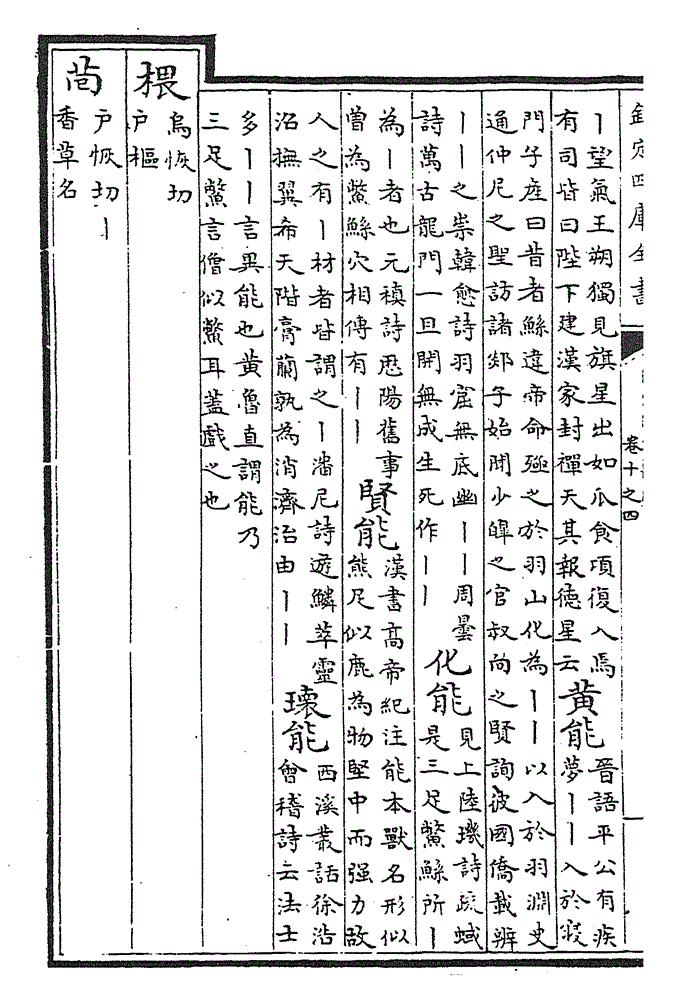 欽定四庫全書
卷十之四
丨望氣王朔獨見旗星出如瓜食頃復入焉
有司皆曰陛下建漢家封禪天其報德星云
黃能
晉語平公有疾
夢丨丨入於寢
門子產曰昔者鯀違帝命殛之於羽山化為丨丨以入於羽淵史
通仲尼之聖訪諸郯子始聞少皥之官叔向之賢詢彼國僑載辨
丨丨之祟韓愈詩羽窟無底幽丨丨周曇
詩萬古龍門一旦開無成生死作丨丨
化能
見上陸璣詩疏蜮
是三足鱉鯀所丨
為丨者也元稹詩厯陽舊事
曽為鱉鯀穴相傳有丨丨
賢能
漢書高帝紀注能本獸名形似
熊足似鹿為物堅中而强力故
人之有丨材者皆謂之丨潘尼詩遊鱗萃靈
沼撫翼希天階膏蘭孰為消濟治由丨丨
瓌能
西溪叢話徐浩
會稽詩云法士
多丨丨言異能也黃魯直謂能乃
三足鱉言僧似鱉耳蓋戲之也
椳
烏恢切
户樞
茴
户恢切丨
香草名